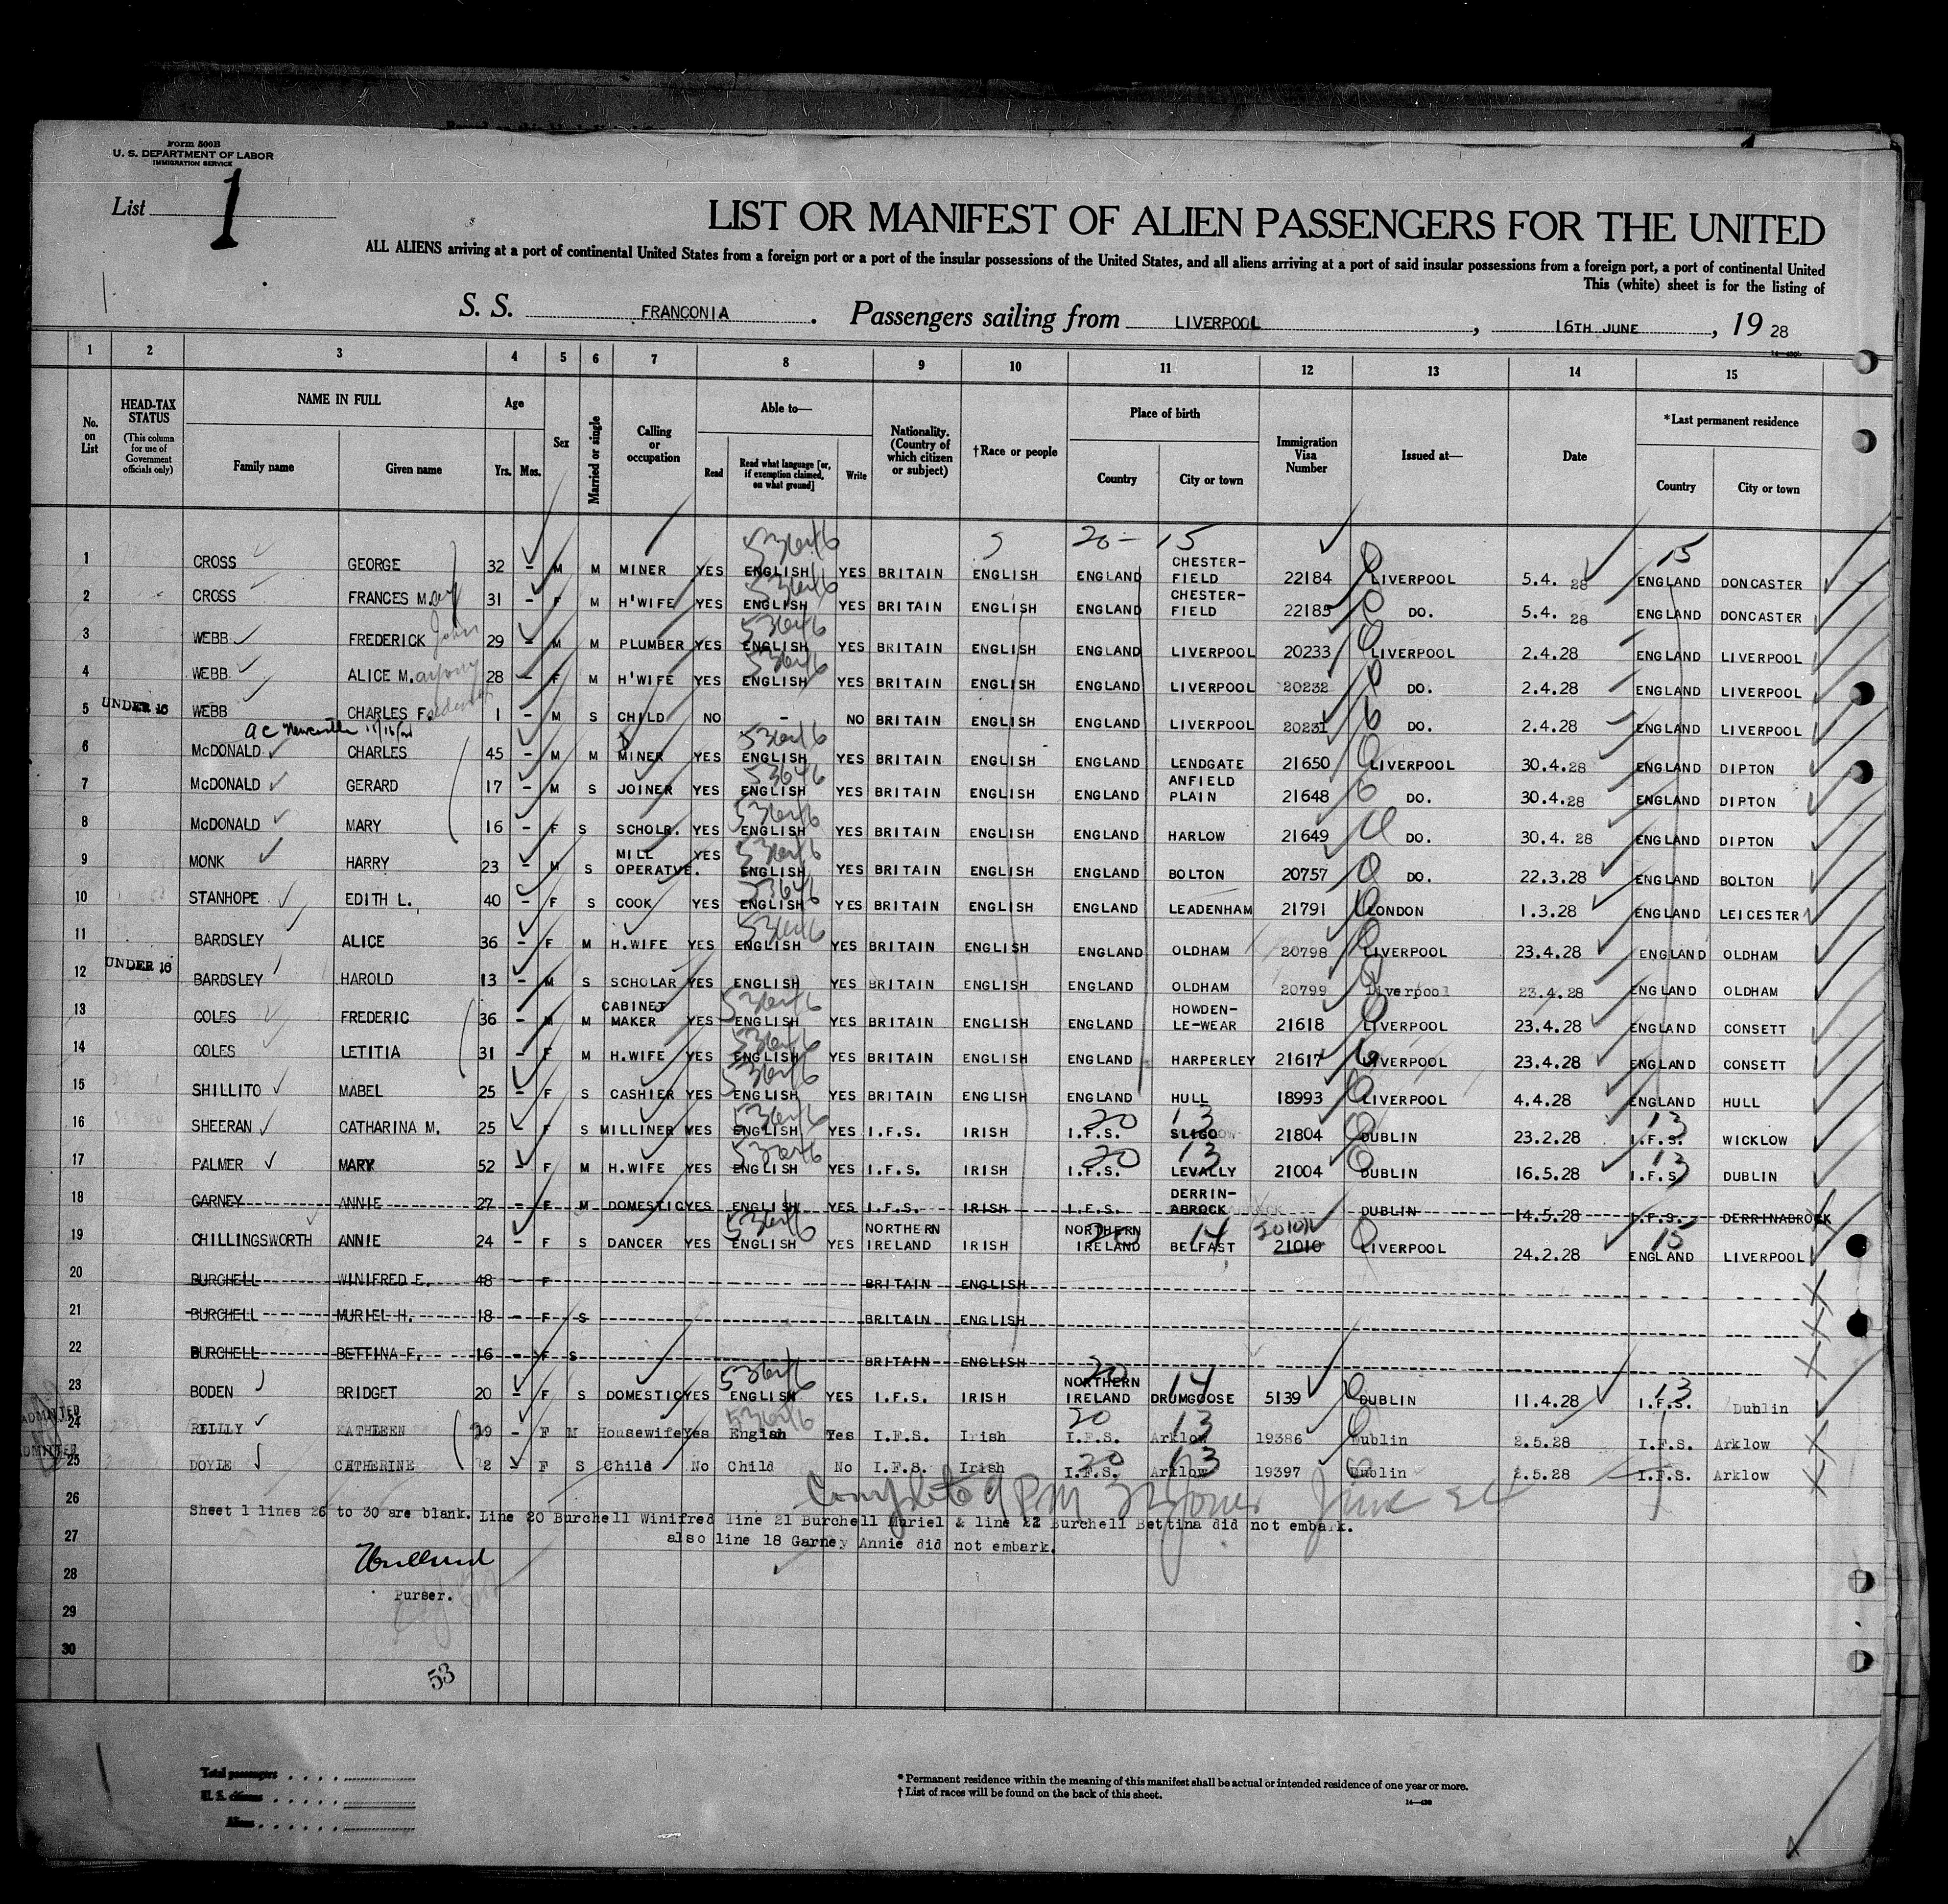 Form 500B
U. S. DEPARTMENT OF LABOR
IMMIGRATION SERVICE
List 1
LIST OR MANIFEST OF ALIEN PASSENGERS FOR THE UNITED
ALL ALIENS arriving at a port of continental United States from a foreign port or a port of the insular possessions of the United States, and all aliens arriving at a port of said insular possessions from a foreign port, a port of continental United
This (white) sheet is for the listing of
S. S. FRANCONIA. Passengers sailing from LIVERPOOL, 16TH JUNE, 19 28
1 2 3 4 5 6 7 8 9 10 11 12 13 14 15
No. on List HEAD-TAX STATUS (This column for use of Government officials only) NAME IN FULL Family name Given name Age Yrs. Mos. Sex Married or single Calling or occupation Able to— Read Read what language [or, if exemption claimed, on what ground] Write Nationality. (Country of which citizen or subject) †Race or people Place of birth Country City or town Immigration Visa Number Issued at— Date *Last permanent residence Country City or town
5 20- 15 15
1 CROSS GEORGE 32 - M M MINER YES ENGLISH YES BRITAIN ENGLISH ENGLAND CHESTER-FIELD 22184 LIVERPOOL 5.4. 28 ENGLAND DONCASTER
2 CROSS FRANCES M. 31 - F M H'WIFE YES ENGLISH YES BRITAIN ENGLISH ENGLAND CHESTER-FIELD 22185 DO. 5.4. 28 ENGLAND DONCASTER
3 WEBB FREDERICK John 29 - M M PLUMBER YES ENGLISH YES BRITAIN ENGLISH ENGLAND LIVERPOOL 20233 LIVERPOOL 2.4.28 ENGLAND LIVERPOOL
4 WEBB ALICE M. 28 - F M H'WIFE YES ENGLISH YES BRITAIN ENGLISH ENGLAND LIVERPOOL 20232 DO. 2.4.28 ENGLAND LIVERPOOL
5 UNDER 16 WEBB CHARLES F. 1 - M S CHILD NO - NO BRITAIN ENGLISH ENGLAND LIVERPOOL 20231 DO. 2.4.28 ENGLAND LIVERPOOL
6 McDONALD CHARLES 45 - M M MINER YES ENGLISH YES BRITAIN ENGLISH ENGLAND LENDGATE 21650 LIVERPOOL 30.4.28 ENGLAND DIPTON
7 McDONALD GERARD 17 - M S JOINER YES ENGLISH YES BRITAIN ENGLISH ENGLAND ANFIELD PLAIN 21648 DO. 30.4.28 ENGLAND DIPTON
8 McDONALD MARY 16 - F S SCHOLR. YES ENGLISH YES BRITAIN ENGLISH ENGLAND HARLOW 21649 DO. 30.4. 28 ENGLAND DIPTON
9 MONK HARRY 23 - M S MILL OPERATVE. YES ENGLISH YES BRITAIN ENGLISH ENGLAND BOLTON 20757 DO. 22.3.28 ENGLAND BOLTON
10 STANHOPE EDITH L. 40 - F S COOK YES ENGLISH YES BRITAIN ENGLISH ENGLAND LEADENHAM 21791 LONDON 1.3.28 ENGLAND LEICESTER
11 BARDSLEY ALICE 36 - F M H.WIFE YES ENGLISH YES BRITAIN ENGLISH ENGLAND OLDHAM 20798 LIVERPOOL 23.4.28 ENGLAND OLDHAM
12 UNDER 16 BARDSLEY HAROLD 13 - M S SCHOLAR YES ENGLISH YES BRITAIN ENGLISH ENGLAND OLDHAM 20799 Liverpool 23.4.28 ENGLAND OLDHAM
13 COLES FREDERIC 36 - M M CABINET MAKER YES ENGLISH YES BRITAIN ENGLISH ENGLAND HOWDEN-LE-WEAR 21618 LIVERPOOL 23.4.28 ENGLAND CONSETT
14 COLES LETITIA 31 - F M H.WIFE YES ENGLISH YES BRITAIN ENGLISH ENGLAND HARPERLEY 21617 LIVERPOOL 23.4.28 ENGLAND CONSETT
15 SHILLITO MABEL 25 - F S CASHIER YES ENGLISH YES BRITAIN ENGLISH ENGLAND HULL 18993 LIVERPOOL 4.4.28 ENGLAND HULL
16 SHEERAN CATHARINA M. 25 F S MILLINER YES ENGLISH YES I.F.S. IRISH I.F.S. SLIGO 21804 DUBLIN 23.2.28 I.F.S. WICKLOW
17 PALMER MARY 52 - F M H.WIFE YES ENGLISH YES I.F.S. IRISH I.F.S. LEVALLY 21004 DUBLIN 16.5.28 I.F.S. DUBLIN
18 GARNEY ANNIE 27 - F M DOMESTIC YES ENGLISH YES I.F.S. IRISH I.F.S. DERRIN-ABROCK DUBLIN 14.5.28 I.F.S. DERRINABROCK
19 CHILLINGSWORTH ANNIE 24 - F S DANCER YES ENGLISH YES NORTHERN IRELAND IRISH NORTHERN IRELAND BELFAST 21010 LIVERPOOL 24.2.28 ENGLAND LIVERPOOL
20 BURCHELL WINIFRED E. 48 - F BRITAIN ENGLISH
21 BURCHELL MURIEL H. 18 - F S BRITAIN ENGLISH
22 BURCHELL BETTINA F. 16 - F S BRITAIN ENGLISH
23 BODEN BRIDGET 20 - F S DOMESTIC YES ENGLISH YES I.F.S. IRISH NORTHERN IRELAND DRUMGOOSE 5139 DUBLIN 11.4.28 I.F.S. Dublin
ADMITTED 24 REILLY KATHLEEN 29 - F M Housewife Yes English Yes I.F.S. Irish I.F.S. Arklow 19386 Dublin 2.5.28 I.F.S. Arklow
ADMITTED 25 DOYLE CATHERINE 2 F S Child No Child No I.F.S. Irish I.F.S. Arklow 19397 Dublin 2.5.28 I.F.S. Arklow
Complete 9 PM June 24
26 Sheet 1 lines 26 to 30 are blank. Line 20 Burchell Winifred line 21 Burchell Muriel & line 22 Burchell Bettina did not embark.
27 also line 18 Garney Annie did not embark.
28 Purser.
29
30
53
Total passengers
U. S. citizens
Aliens
* Permanent residence within the meaning of this manifest shall be actual or intended residence of one year or more.
† List of races will be found on the back of this sheet.